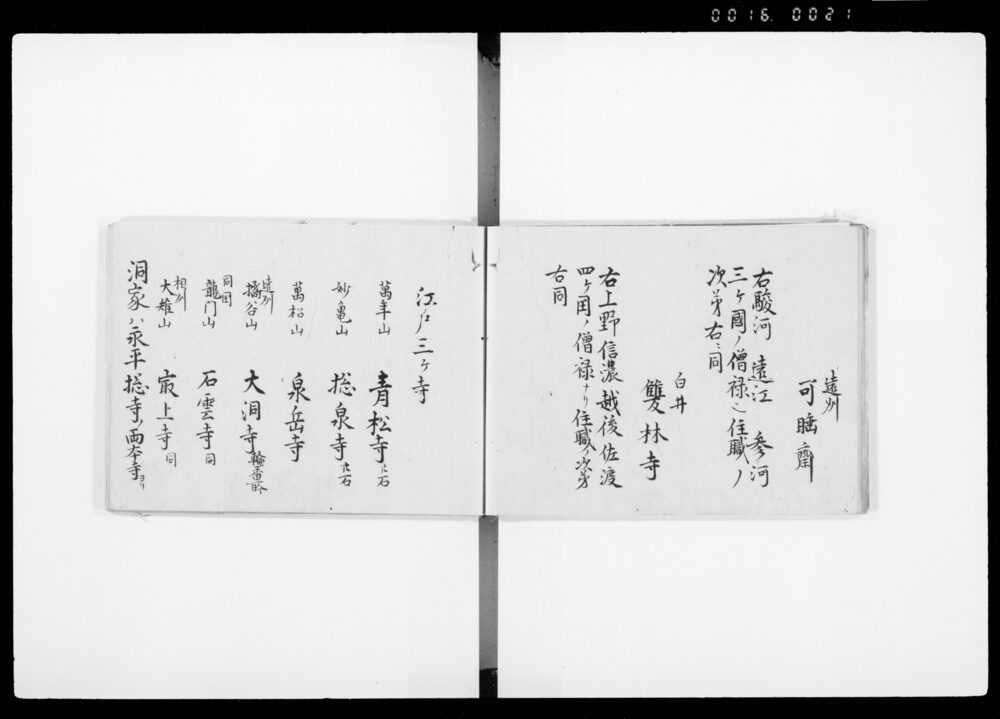 0016. 0021
遠州
可睡齋
右駿河 遠江 参河
三ケ國ノ僧禄也住職ノ
次第右ニ同
白井
雙林寺
右上野信濃越後佐渡
四ケ国ノ僧禄ナリ住職ノ次第
右同
江戸三ケ寺
萬年山 青松寺 廿石
妙亀山 総泉寺 廿石
萬松山 泉岳寺
遠州
橘谷山 大洞寺 輪番所
同国
龍门山 石雲寺 同
相州
大雄山 最上寺 同
洞家ハ永平総寺ノ両本寺ヨリ